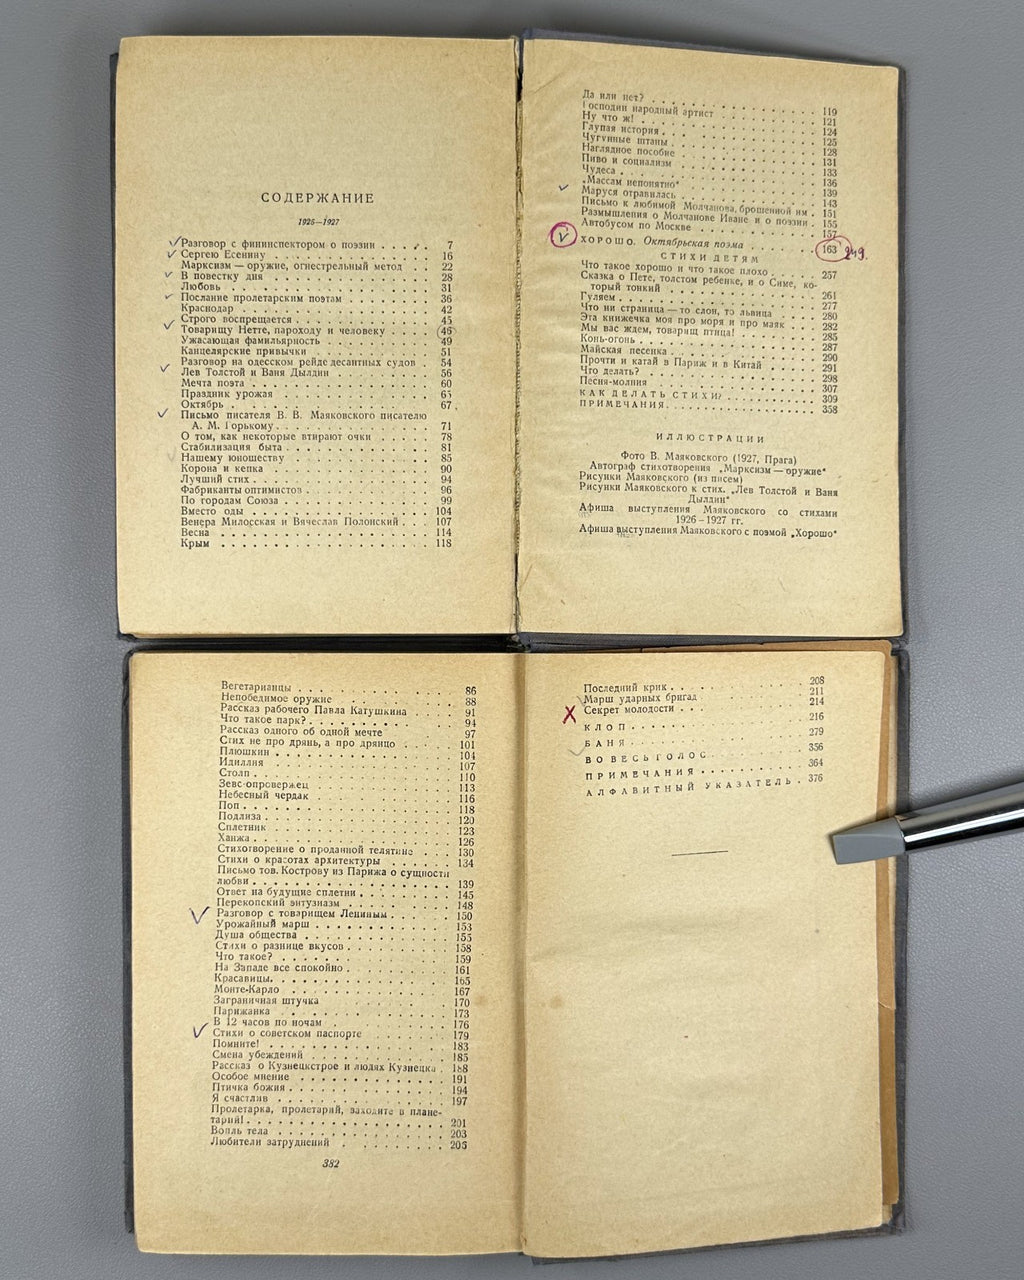 СОДЕРЖАНИЕ
1926—1927
Разговор с фининспектором о поэзии . . . . . 7
Сергею Есенину . . . . . 16
Марксизм — оружие, огнестрельный метод . . 22
В повестку дня . . . . . 28
Любовь . . . . . 31
Послание пролетарским поэтам . . . . . 36
Краснодар . . . . . 42
Строго воспрещается . . . . . 45
Товарищу Нетте, пароходу и человеку . . . . 46
Ужасающая фамильярность . . . . . 49
Канцелярские привычки . . . . . 51
Разговор на одесском рейде десантных судов . 54
Лев Толстой и Ваня Дылдин . . . . . 56
Мечта поэта . . . . . 60
Праздник урожая . . . . . 63
Октябрь . . . . . 67
Письмо писателя В. В. Маяковского писателю
А. М. Горькому . . . . . 71
О том, как некоторые втирают очки . . . . . 78
Стабилизация быта . . . . . 81
Нашему юношеству . . . . . 85
Корона и кепка . . . . . 90
Лучший стих . . . . . 94
Фабриканты оптимистов . . . . . 96
По городам Союза . . . . . 99
Вместо оды . . . . . 104
Венера Милосская и Вячеслав Полонский . . . 107
Весна . . . . . 114
Крым . . . . . 118
Да или нет? . . . . . 119
Господин народный артист . . . . . 121
Ну что ж! . . . . . 124
Глупая история . . . . . 125
Чугунные штаны . . . . . 128
Наглядное пособие . . . . . 131
Пиво и социализм . . . . . 133
Чудеса . . . . . 136
„Массам непонятно“ . . . . . 139
Маруся отравилась . . . . . 143
Письмо к любимой Молчанова, брошенной им . 151
Размышления о Молчанове Иване и о поэзии . 155
Автобусом по Москве . . . . . 157
ХОРОШО. Октябрьская поэма . . . . . 163 249.
СТИХИ ДЕТЯМ
Что такое хорошо и что такое плохо . . . . . 257
Сказка о Пете, толстом ребенке, и о Симе, ко-
торый тонкий . . . . . 261
Гуляем . . . . . 277
Что ни страница — то слон, то львица . . . . 280
Эта книжечка моя про моря и про маяк . . . 282
Мы вас ждем, товарищ птица! . . . . . 285
Конь-огонь . . . . . 287
Майская песенка . . . . . 290
Прочти и катай в Париж и в Китай . . . . . 291
Что делать? . . . . . 298
Песня-молния . . . . . 307
КАК ДЕЛАТЬ СТИХИ? . . . . . 309
ПРИМЕЧАНИЯ . . . . . 358
ИЛЛЮСТРАЦИИ
Фото В. Маяковского (1927, Прага)
Автограф стихотворения „Марксизм — оружие“
Рисунки Маяковского (из писем)
Рисунки Маяковского к стих. „Лев Толстой и Ваня
Дылдин“
Афиша выступления Маяковского со стихами
1926—1927 гг.
Афиша выступления Маяковского с поэмой „Хорошо“
Вегетарианцы . . . . . 86
Непобедимое оружие . . . . . 88
Рассказ рабочего Павла Катушкина . . . . . 91
Что такое парк? . . . . . 94
Рассказ одного об одной мечте . . . . . 97
Стих не про дрянь, а про дрянцо . . . . . 101
Плюшкин . . . . . 104
Идиллия . . . . . 107
Столп . . . . . 110
Зевс-опровержец . . . . . 113
Небесный чердак . . . . . 116
Поп . . . . . 118
Подлиза . . . . . 120
Сплетник . . . . . 123
Ханжа . . . . . 126
Стихотворение о проданной телятине . . . 130
Стихи о красотах архитектуры . . . . . 134
Письмо тов. Кострову из Парижа о сущности
любви . . . . . 139
Ответ на будущие сплетни . . . . . 145
Перекопский энтузиазм . . . . . 148
Разговор с товарищем Лениным . . . . . 150
Урожайный марш . . . . . 153
Душа общества . . . . . 155
Стихи о разнице вкусов . . . . . 158
Что такое? . . . . . 159
На Западе все спокойно . . . . . 161
Красавицы . . . . . 165
Монте-Карло . . . . . 167
Заграничная штучка . . . . . 170
Парижанка . . . . . 173
В 12 часов по ночам . . . . . 176
Стихи о советском паспорте . . . . . 179
Помните! . . . . . 183
Смена убеждений . . . . . 185
Рассказ о Кузнецкстрое и людях Кузнецка . 188
Особое мнение . . . . . 191
Птичка божия . . . . . 194
Я счастлив . . . . . 197
Пролетарка, пролетарий, заходите в плане-
тарий! . . . . . 201
Вопль тела . . . . . 203
Любители затруднений . . . . . 205
382
Последний крик . . . . . 208
Марш ударных бригад . . . . . 211
Секрет молодости . . . 214
КЛОП . . . . . 216
БАНЯ . . . . . 279
ВО ВЕСЬ ГОЛОС . . . . . 356
ПРИМЕЧАНИЯ . . . . . 364
АЛФАВИТНЫЙ УКАЗАТЕЛЬ . 376